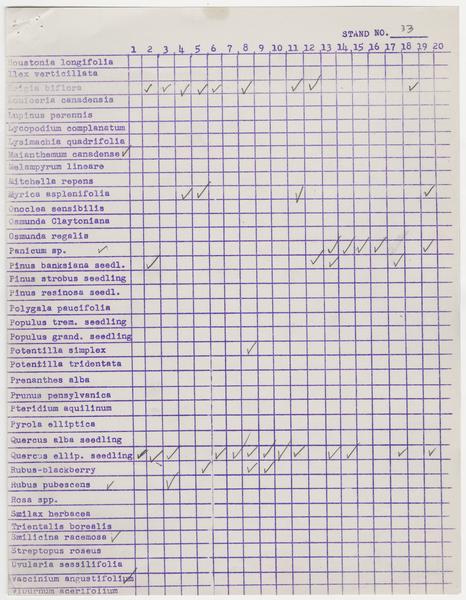 STAND NO. 33
1 2 3 4 5 6 7 8 9 10 11 12 13 14 15 16 17 18 19 20
Houstonia longifolia
Ilex verticillata
Krigia biflora
Lonicera canadensis
Lupinus perennis
Lycopodium complanatum
Lysimachia quadrifolia
Maianthemum canadense ✓
Melampyrum lineare
Mitchella repens
Myrica asplenifolia
Onoclea sensibilis
Osmunda Claytoniana
Osmunda regalis
Panicum sp. ✓
Pinus banksiana seedl.
Pinus strobus seedling
Pinus resinosa seedl.
Polygala paucifolia
Populus trem. seedling
Populus grand. seedling
Potentilla simplex
Potentilla tridentata
Prenanthes alba
Prunus pensylvanica
Pteridium aquilinum
Pyrola elliptica
Quercus alba seedling
Quercus ellip. seedling
Rubus-blackberry
Rubus pubescens ✓
Rosa spp.
Smilax herbacea
Trientalis borealis
Smilicina racemosa ✓
Streptopus roseus
Uvularia sessilifolia
Vaccinium angustifolium
Viburnum acerifolium